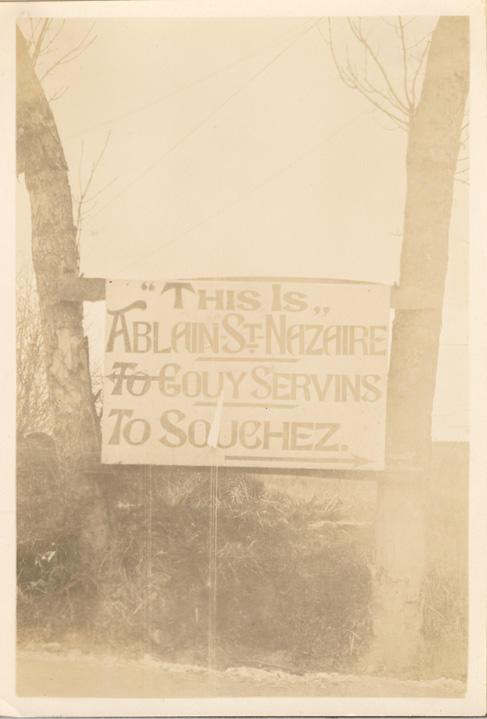 "THIS IS„
ABLAIN-ST-NAZAIRE
TO GOUY SERVINS
TO SOUCHEZ.